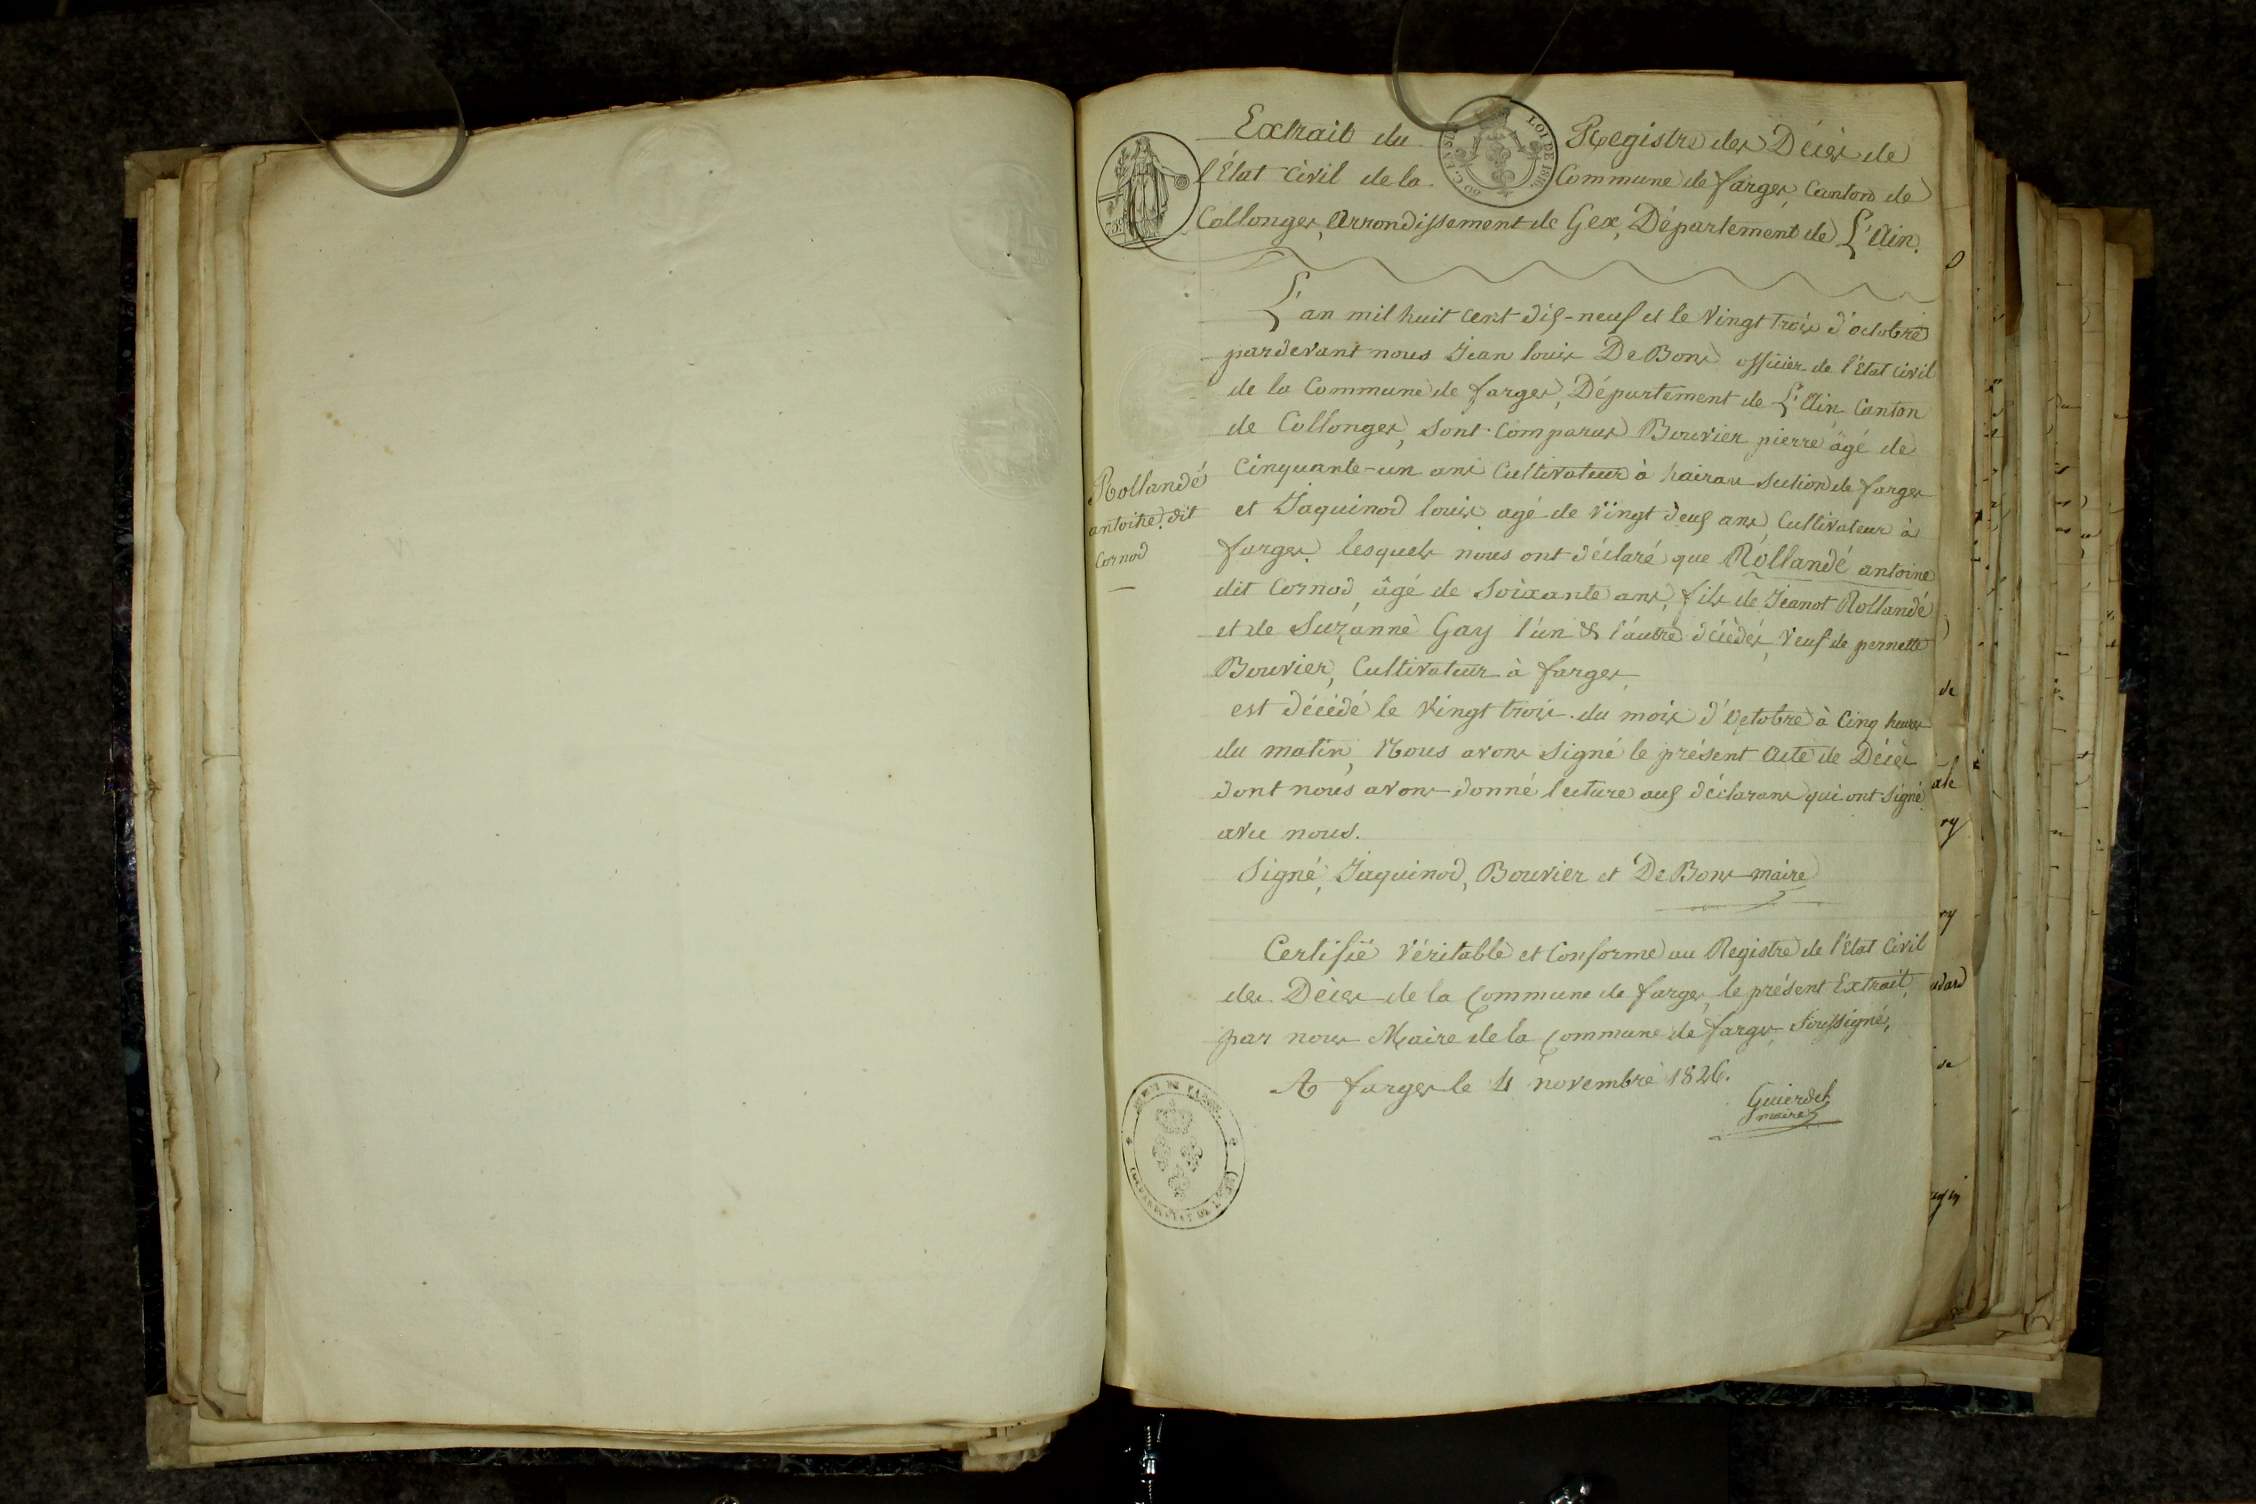 Extrait du Registre des Décès de
l'État Civil de la Commune de farges, Canton de
Collonges, Arrondissement de Gex, Département de L'Ain.
LOI DE 1816.
L'an mil huit cent dix-neuf et le vingt trois d'octobre
pardevant nous Jean louis De Bons officier de l'État civil
de la Commune de farges, Département de L'Ain Canton
de Collonges, sont comparus Bouvier pierre âgé de
Cinquante-un ans Cultivateur à hairan section de farges
et Jaquinod louis agé de vingt deux ans, Cultivateur à
farges. lesquels nous ont déclaré que Rollandé antoine
dit Cornod, âgé de soixante ans, fils de Jeanot Rollandé
et de Suzanne Gay l'un & l'autre décédés, veuf de pernette
Bouvier, Cultivateur à farges,
est décédé le vingt trois du mois d'octobre à Cinq heures
du matin, Nous avons signé le présent Acte de Décès
dont nous avons donné lecture aux déclarans qui ont signé
avec nous.
Signé, Jaquinod, Bouvier et De Bons maire
Rollandé
antoine dit
Cornod
Certifié véritable et Conforme au Registre de l'État Civil
des Décès de la Commune de farges, le présent Extrait,
par nous Maire de la Commune de farges soussigné,
A farges le 4 novembre 1826.
Guierdet
maire
de
ale
ry
ry
udard
de